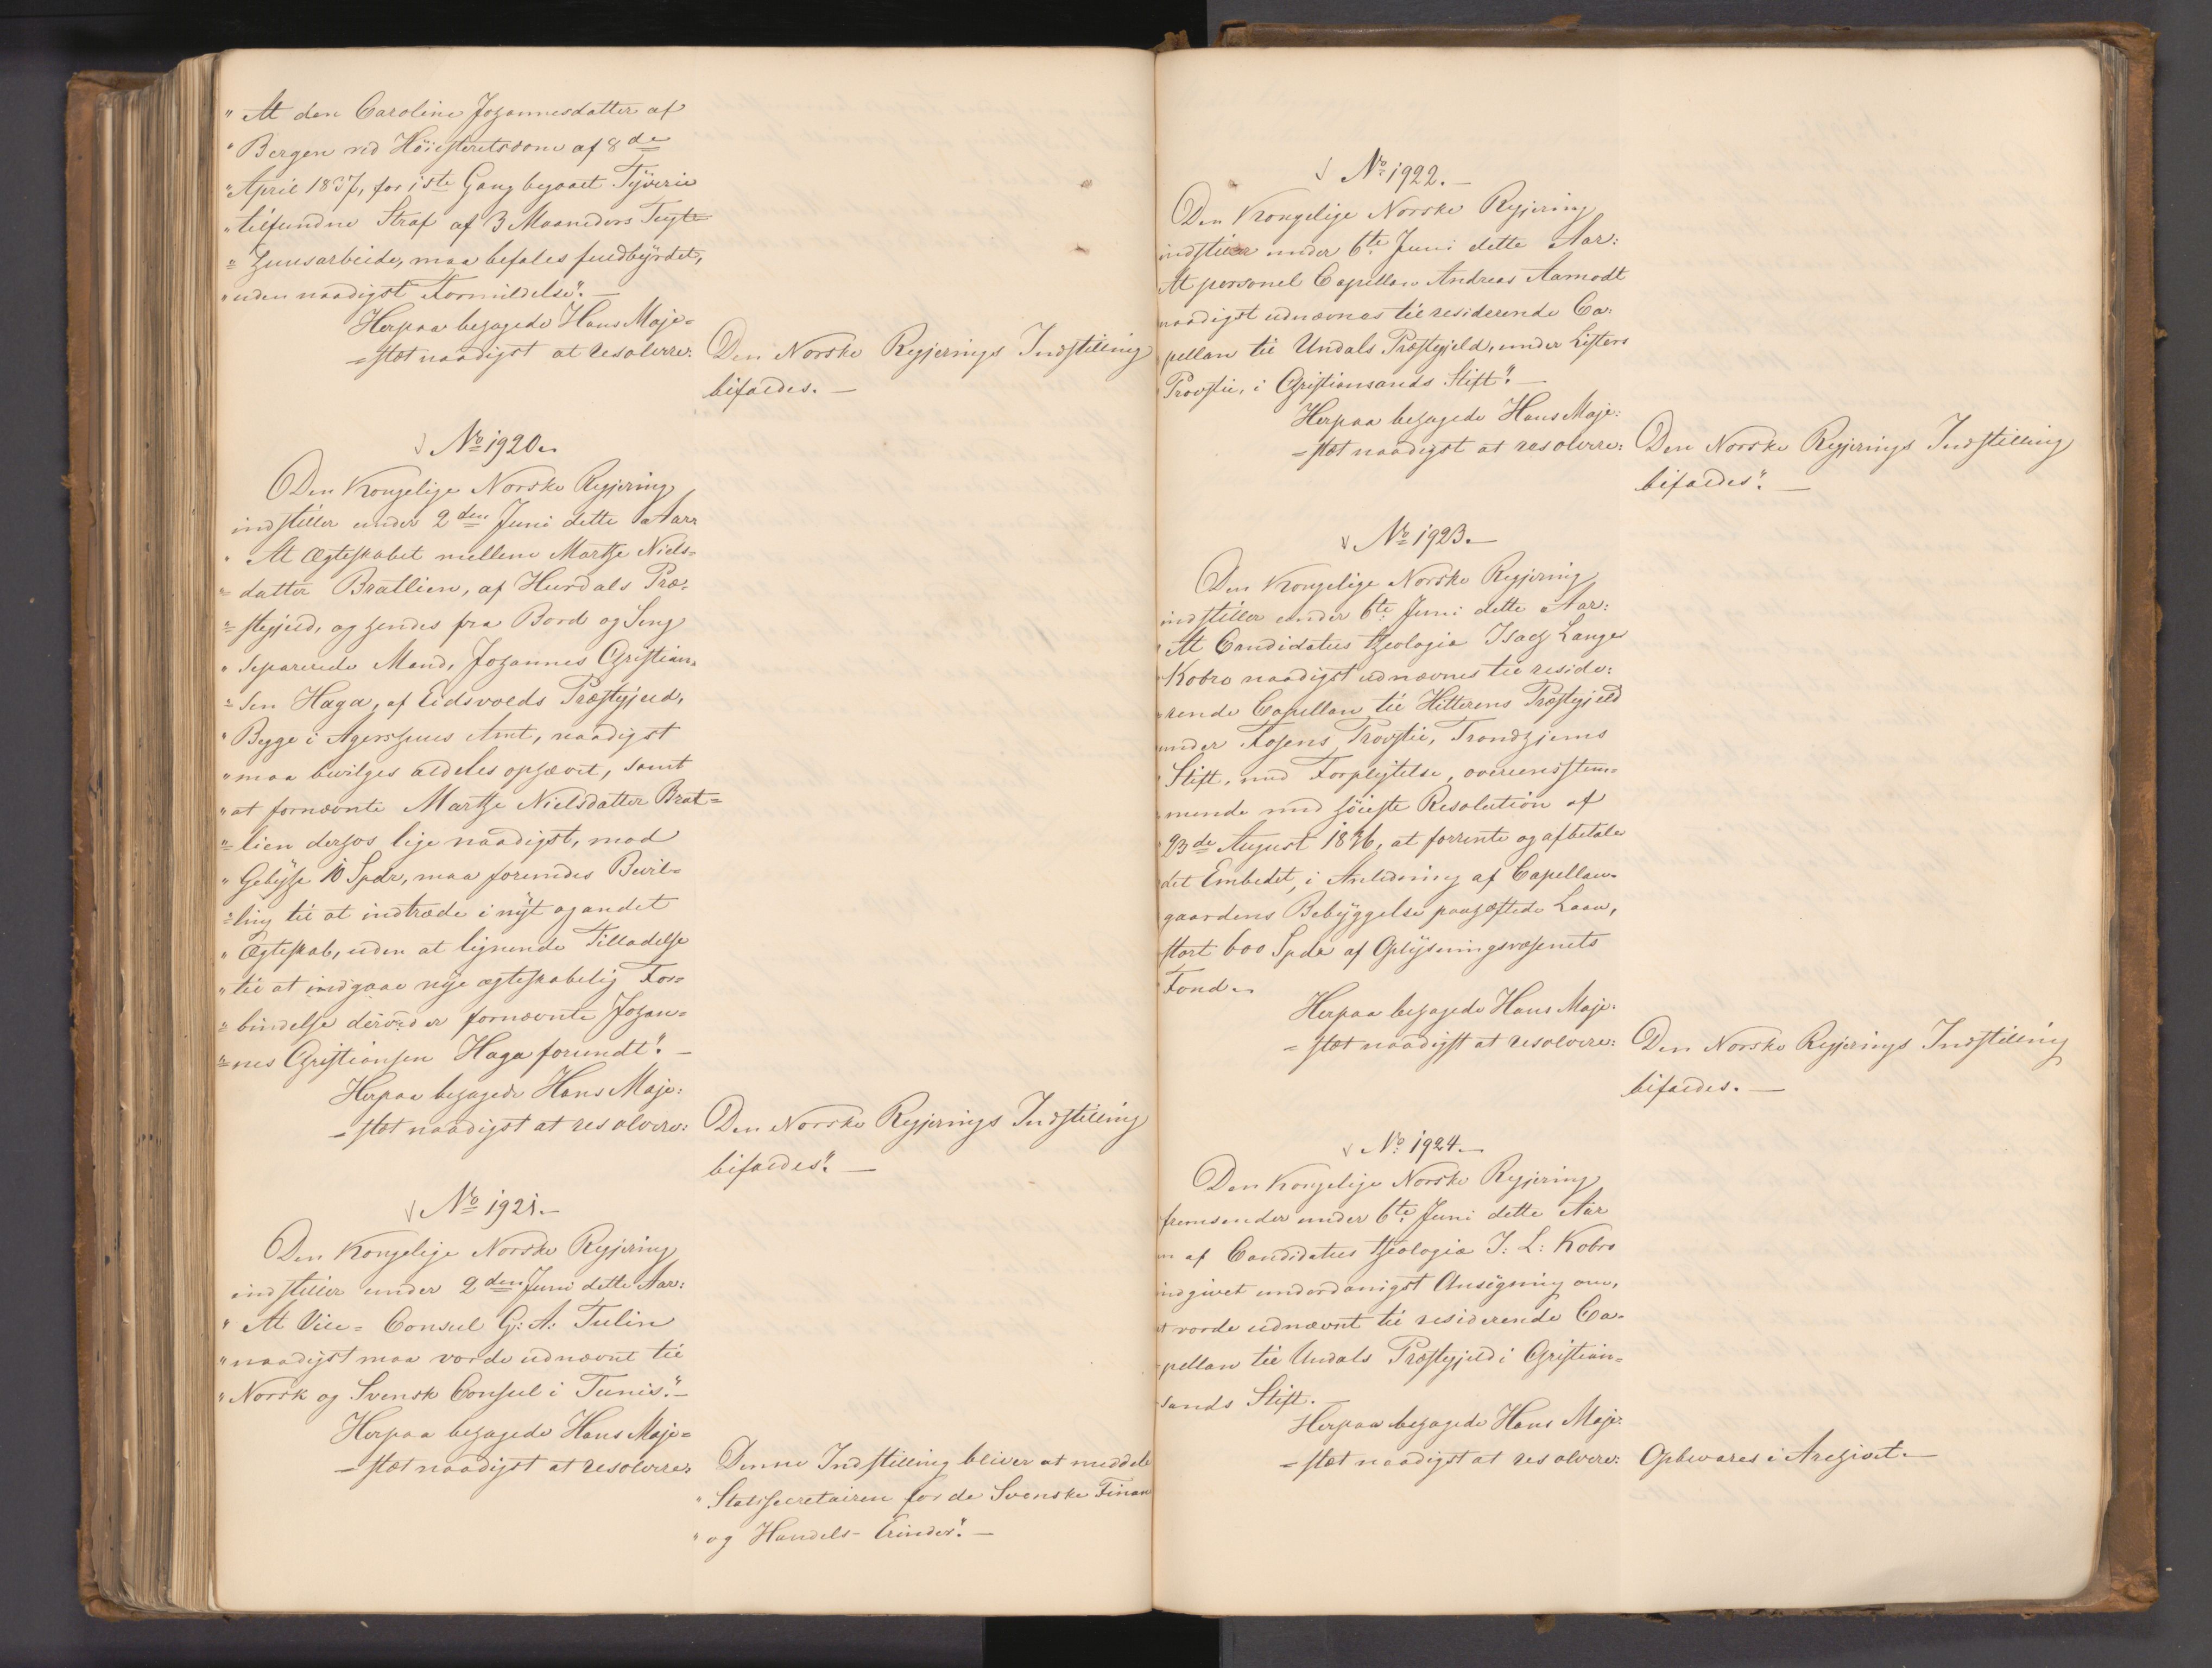 " At den Caroline Johannesdatter af
" Bergen ved Höiesteretsdom af 8de
" April 1837, for 1ste Gang begaaet Tyverie
" tilfundne Straf af 3 Maaneders Tugt-
" huusarbeide, maa befales fuldbyrdet,
" uden naadigst Formildelse". —
Herpaa behagede Hans Maje=
=stæt naadigst at resolvere:
Den Norske Regjerings Indstilling
bifaldes. —
No 1920.
Den Kongelige Norske Regjering
indstiller under 2den Juni dette Aar:
" At Ægteskabet mellem Marthe Niels=
= datter Bratlien, af Hurdals Præ=
= stegjeld, og hendes fra Bord og Seng
" separerede Mand, Johannes Christian=
= sen Haga, af Eidsvolds Præstegjeld,
" Begge i Agershuus Amt, naadigst
" maa bevilges aldeles ophævet, samt
" at fornævnte Marthe Nielsdatter Brat=
"= lien derhos lige naadigst, mod
" Gebyhr 10 Spdr, maa forundes Bevil=
"= ling til at indtræde i nyt og andet
" Ægteskab, uden at lignende Tilladelse
" til at indgaae nye ægteskabelig For=
= bindelse derved er fornævnte Johan=
"= nes Christiansen Haga forundt". —
Herpaa behagede Hans Maje:
= stæt naadigst at resolvere:
Den Norske Regjerings Indstilling
bifaldes". —
No 1921. —
Den Kongelige Norske Regjering
indstiller under 2den Juni dette Aar:
" At Vice= Consul G: A: Tulin
" naadigst maa vorde udnævnt til
" Norsk og Svensk Consul i Tunis." —
Herpaa behagede Hans Maje=
= stæt naadigst at resolvere:
Denne Indstilling bliver at meddele
" Statssecretairen for de Svenske Finan
" og Handels- Erinder". —
No 1922. —
Den Kongelige Norske Regjering
indstiller under 6te Juni dette Aar:
At personel Capellan Andreas Aamodt
naadigst udnævnes til residerende Ca=
pellan til Undals Præstegjeld, under Listers
Provstie, i Christiansands Stift". —
Herpaa behagede Hans Maje:
= stæt naadigst at resolvere:
Den Norske Regjerings Indstilling
bifaldes". —
No 1923. —
Den Kongelige Norske Regjering
indstiller under 6te Juni dette Aar:
At Candidatus theologiæ Isach Lange
Kobro naadigst udnævnes til reside:
rende Capellan til Hitterens Præstegjeld
under Fosens Provstie, Trondhjems
Stift, med Forpligtelse, overeensstem=
mende med höieste Resolution af
23de August 1836, at forrente og afbetale
det Embedet, i Anledning af Capellan-
gaardens Bebyggelse paahæftede Laan,
stort 600 Spdr af Oplysningsvæsenets
Fond.
Herpaa behagede Hans Maje:
= stæt naadigst at resolvere:
Den Norske Regjerings Indstilling
bifaldes. —
No 1924. —
Den Kongelige Norske Regjering
fremsender under 6te Juni dette Aar
en af Candidatus theologiæ I: L: Kobro
indgivet underdanigst Ansögning om,
at vorde udnævnt til residerende Ca=
pellan til Undals Præstegjeld i Christian=
sands Stift. —
Herpaa behagede Hans Maje:
= stæt naadigst at resolvere:
Opbevares i Archivet. —